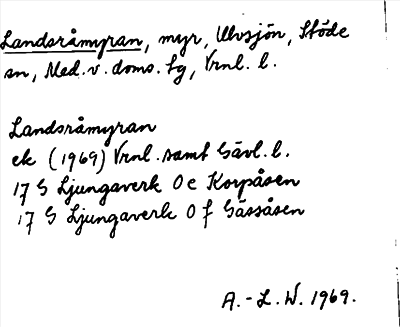 Landsråmyran, myr, Ulvsjön, Stöde
sn, Med. v. doms. tg, Vrnl. l.
Landsråmyran
ek (1969) Vrnl. samt Gävl. l.
17 G Ljungaverk 0 e Korpåsen
17 G Ljungaverk 0 f Gässåsen
A.-L. W. 1969.